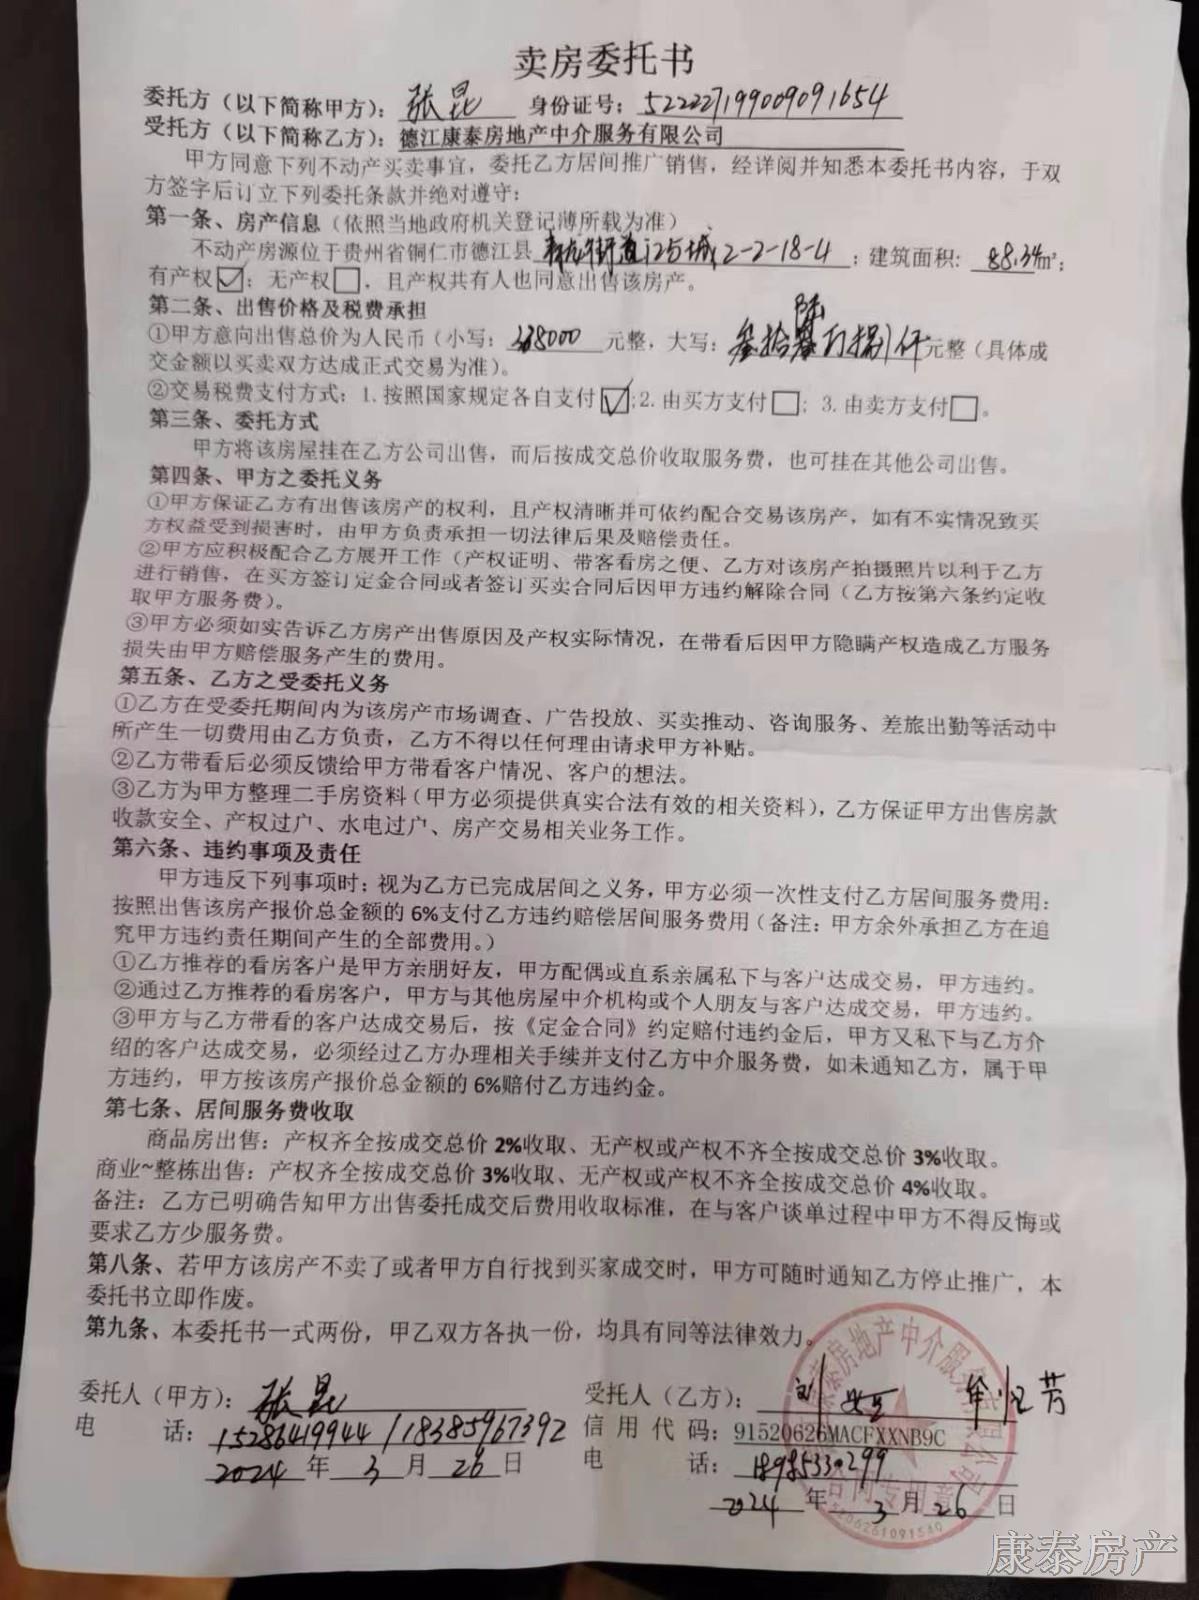 卖房委托书
委托方（以下简称甲方）：张昆 身份证号：522227199009091654
受托方（以下简称乙方）：德江康泰房地产中介服务有限公司
甲方同意下列不动产买卖事宜，委托乙方居间推广销售，经详阅并知悉本委托书内容，于双
方签字后订立下列委托条款并绝对遵守：
第一条、房产信息（依照当地政府机关登记薄所载为准）
不动产房源位于贵州省铜仁市德江县 街道 城2-2-18-4；建筑面积：88.34㎡；
有产权☑；无产权□，且产权共有人也同意出售该房产。
第二条、出售价格及税费承担
①甲方意向出售总价为人民币（小写：368000元整，大写：叁拾陆万捌仟元整（具体成
交金额以买卖双方达成正式交易为准）。
②交易税费支付方式：1.按照国家规定各自支付☑；2.由买方支付□；3.由卖方支付□。
第三条、委托方式
甲方将该房屋挂在乙方公司出售，而后按成交总价收取服务费，也可挂在其他公司出售。
第四条、甲方之委托义务
①甲方保证乙方有出售该房产的权利，且产权清晰并可依约配合交易该房产，如有不实情况致买
方权益受到损害时，由甲方负责承担一切法律后果及赔偿责任。
②甲方应积极配合乙方展开工作（产权证明、带客看房之便、乙方对该房产拍摄照片以利于乙方
进行销售，在买方签订定金合同或者签订买卖合同后因甲方违约解除合同（乙方按第六条约定收
取甲方服务费）。
③甲方必须如实告诉乙方房产出售原因及产权实际情况，在带看后因甲方隐瞒产权造成乙方服务
损失由甲方赔偿服务产生的费用。
第五条、乙方之受委托义务
①乙方在受委托期间内为该房产市场调查、广告投放、买卖推动、咨询服务、差旅出勤等活动中
所产生一切费用由乙方负责，乙方不得以任何理由请求甲方补贴。
②乙方带看后必须反馈给甲方带看客户情况、客户的想法。
③乙方为甲方整理二手房资料（甲方必须提供真实合法有效的相关资料），乙方保证甲方出售房款
收款安全、产权过户、水电过户、房产交易相关业务工作。
第六条、违约事项及责任
甲方违反下列事项时；视为乙方已完成居间之义务，甲方必须一次性支付乙方居间服务费用：
按照出售该房产报价总金额的6%支付乙方违约赔偿居间服务费用（备注：甲方余外承担乙方在追
究甲方违约责任期间产生的全部费用。）
①乙方推荐的看房客户是甲方亲朋好友，甲方配偶或直系亲属私下与客户达成交易，甲方违约。
②通过乙方推荐的看房客户，甲方与其他房屋中介机构或个人朋友与客户达成交易，甲方违约。
③甲方与乙方带看的客户达成交易后，按《定金合同》约定赔付违约金后，甲方又私下与乙方介
绍的客户达成交易，必须经过乙方办理相关手续并支付乙方中介服务费，如未通知乙方，属于甲
方违约，甲方按该房产报价总金额的6%赔付乙方违约金。
第七条、居间服务费收取
商品房出售：产权齐全按成交总价2%收取、无产权或产权不齐全按成交总价3%收取。
商业~整栋出售：产权齐全按成交总价3%收取、无产权或产权不齐全按成交总价4%收取。
备注：乙方已明确告知甲方出售委托成交后费用收取标准，在与客户谈单过程中甲方不得反悔或
要求乙方少服务费。
第八条、若甲方该房产不卖了或者甲方自行找到买家成交时，甲方可随时通知乙方停止推广，本
委托书立即作废。
第九条、本委托书一式两份，甲乙双方各执一份，均具有同等法律效力。
委托人（甲方）：张昆
电 话：15286419944/18385967392
2024年3月26日
受托人（乙方）： 芳
信用代码：91520626MACFXXNB9C
电 话：18985330299
2024年3月26日
康泰房地产中介服务有限公司
合同专用章
5206261091540
康泰房产